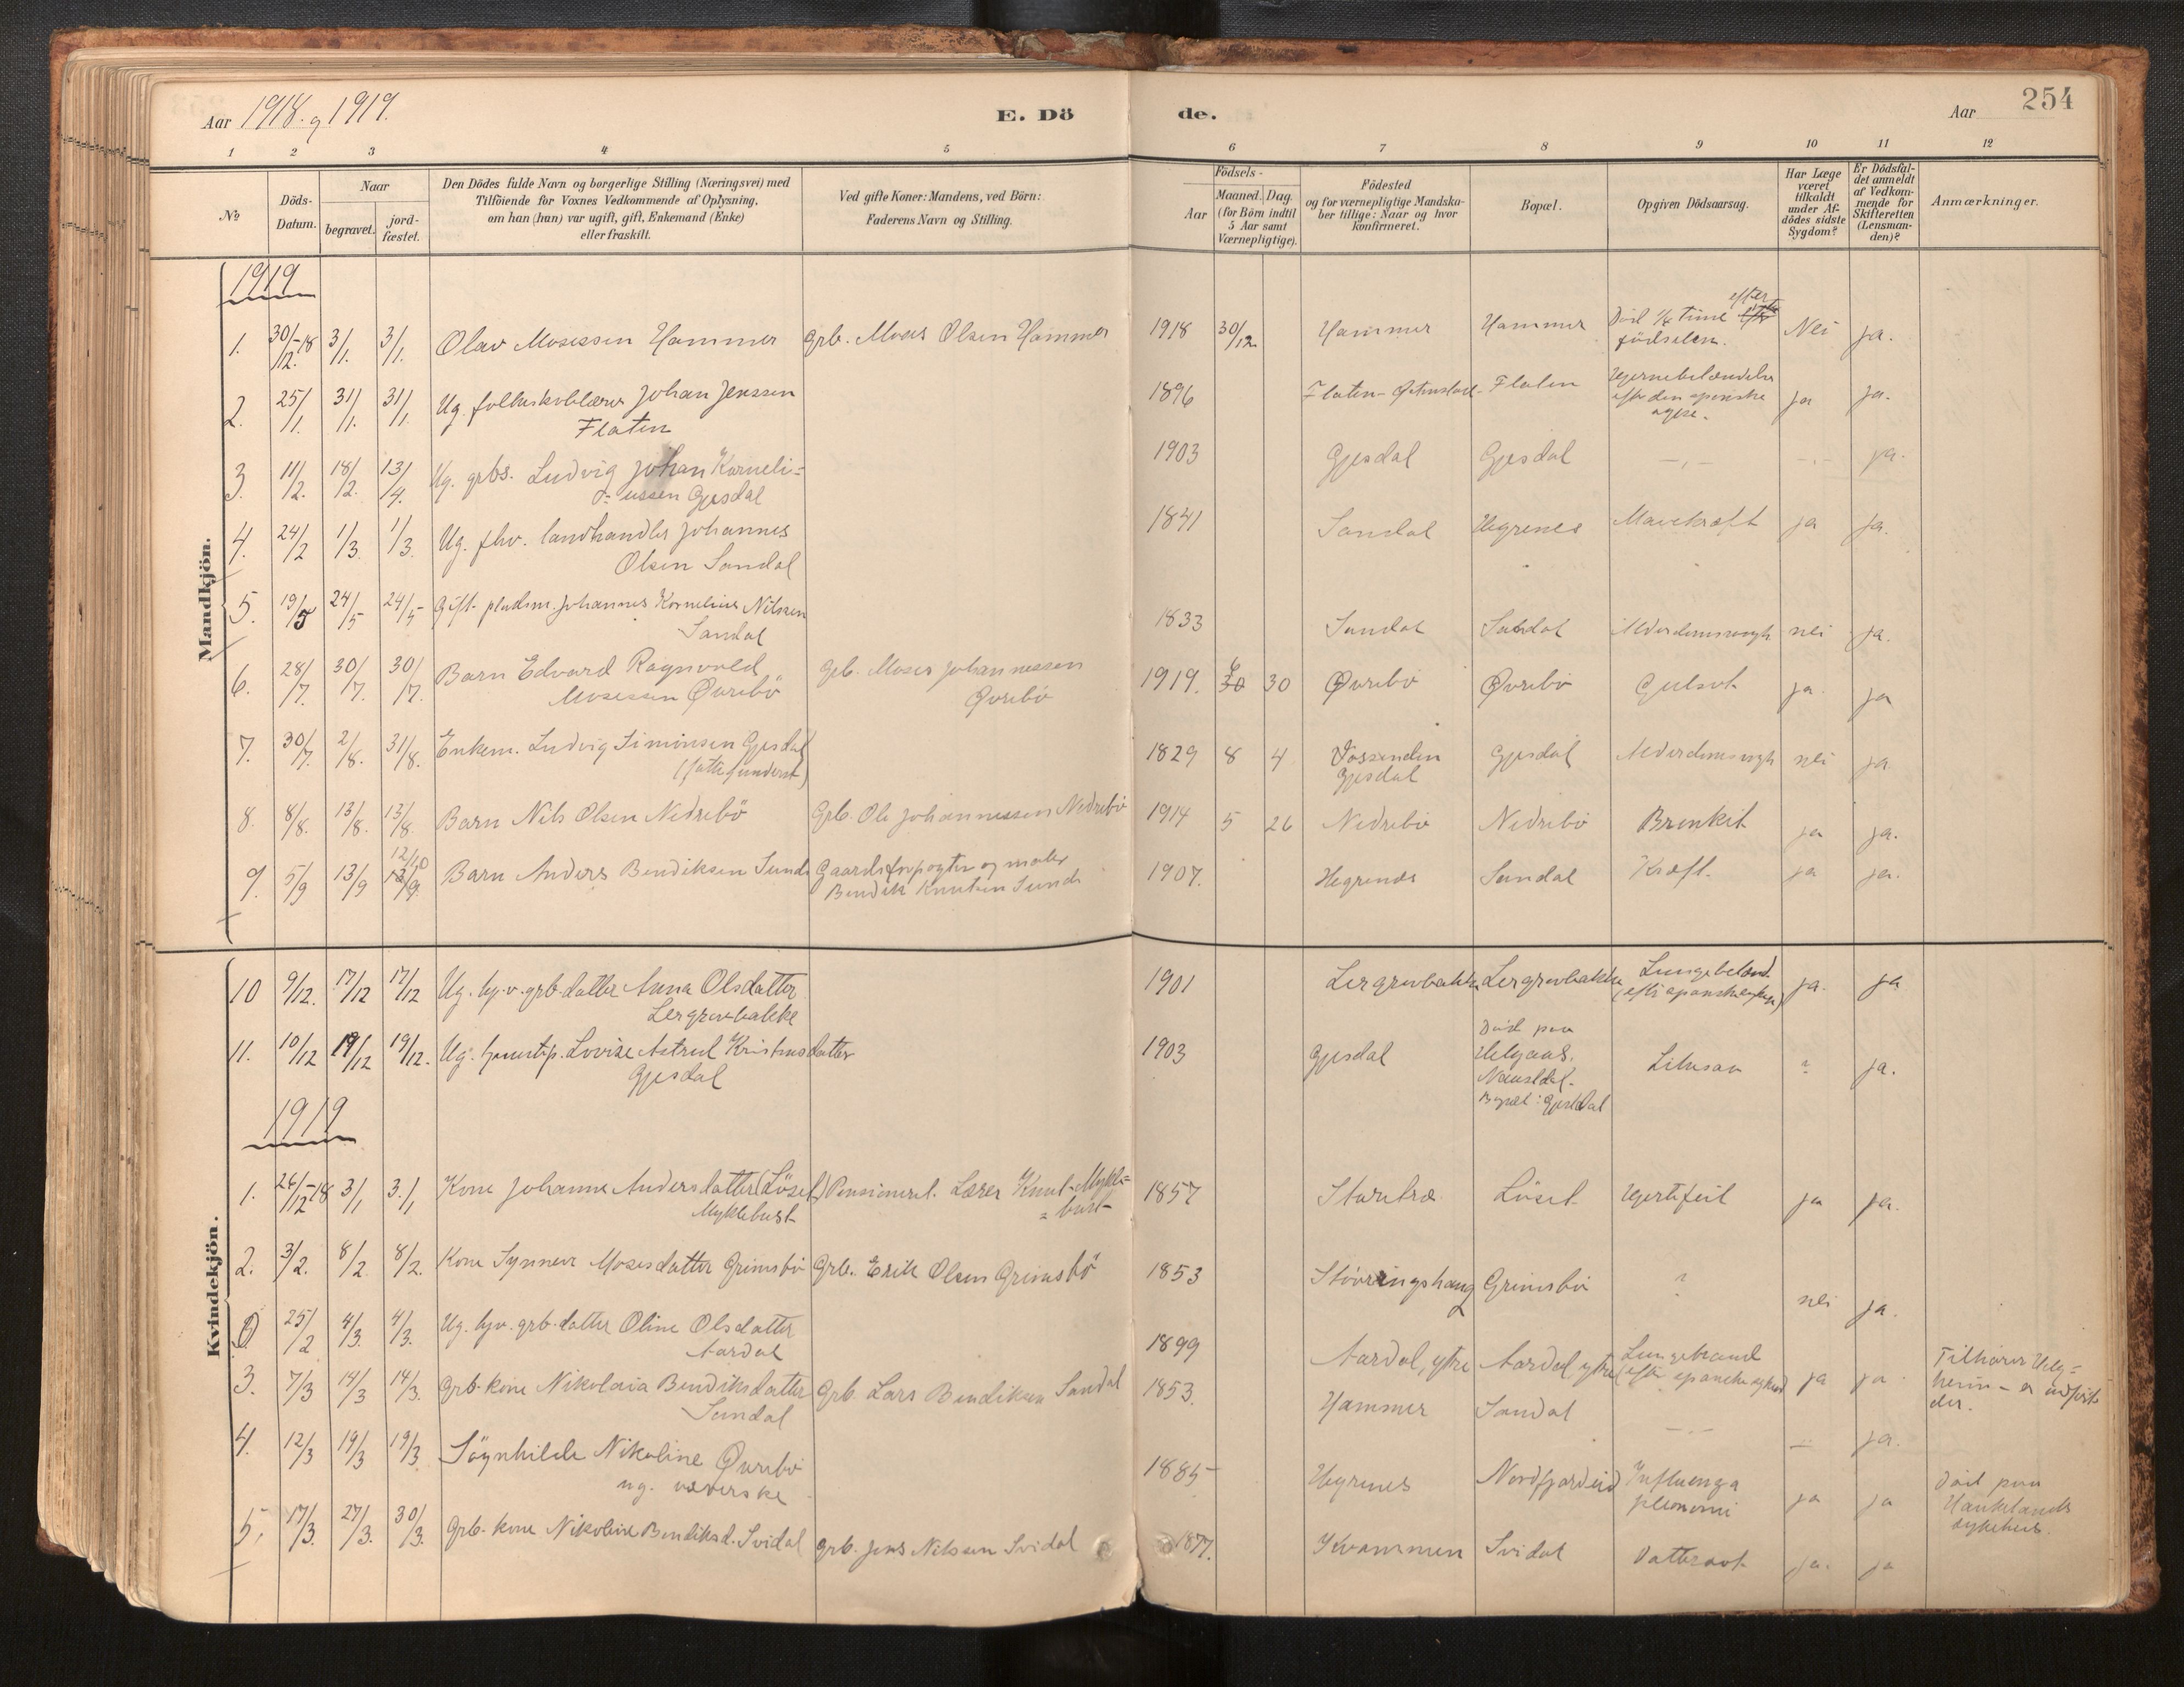 Aar 1918. og 1919.
E. Dö
de.
Aar
254
1 2 3 4 5 6 7 8 9 10 11 12
No
Döds-
Datum.
Naar
begravet.
jord-
fæstet.
Den Dödes fulde Navn og borgerlige Stilling (Næringsvei) med
Tilföiende for Voxnes Vedkommende af Oplysning,
om han (hun) var ugift, gift, Enkemand (Enke)
eller fraskilt.
Ved gifte Koner: Mandens, ved Börn:
Faderens Navn og Stilling.
Födsels-
Aar
Maaned. Dag.
(for Börn indtil
5 Aar samt
Værnepligtige).
Födested
og for værnepligtige Mandska-
ber tillige: Naar og hvor
konfirmeret.
Bopæl.
Opgiven Dödsaarsag.
Har Læge
været
tilkaldt
under Af-
dödes sidste
Sygdom?
Er Dödsfal-
det anmeldt
af Vedkom-
mende for
Skifteretten
(Lensman-
den)?
Anmærkninger.
Mandkjön.
1919
1. 30/12.-18 3/1. 3/1. Olav Mosessen Hammer Grb. Moses Olsen Hammer 1918 30/12. Hammer Hammer Död 1/4 time efter
födselen. Nei ja.
2. 25/1. 31/1. 31/1. Ug. folkeskolelærer Johan Jenssen
Flaten 1896 Flaten Flaten Hjernebetændelse
efter den spanske
syke. ja ja.
3. 11/2. 18/2. 13/4. Ug. grbs. Ludvig Johan Korneli=
ussen Gjesdal 1903 Gjesdal Gjesdal -,- -,- ja.
4. 24/2 1/3. 1/3. Ug. fhv. landhandler Johannes
Olsen Sandal 1841 Sandal Hegrenes Mavekræft ja ja.
5. 19/5 24/5 24/5 Gift. pladsm. Johannes Kornelius Nilssen
Sandal 1833 Sandal Sandal Alderdomssvagh nei ja.
6. 28/7. 30/7. 30/7. Barn Edvard Ragnvald
Mosessen Øvrebö Grb. Moses Johannessen
Øvrebö 1919. 6 30 Øvrebö Øvrebö Gulsot ja. ja
7. 30/7. 2/8. 31/8. Enkem. Ludvig Simonsen Gjesdal
(fattigunderst) 1829 8 4 Vossenden
Gjesdal Gjesdal Alderdomssvgh nei ja
8. 8/8. 13/8. 13/8. Barn Nils Olsen Nedrebö Grb. Ole Johannessen Nedrebö 1914 5 26 Nedrebö Nedrebö Bronkit ja ja.
9. 5/9 13/9 12/10 13/9. Barn Anders Bendiksen Sunde Gaardsforpagter og maler
Bendik Knutsen Sunde 1907. Hegrenes Sandal Kræft. ja ja.
Kvindekjön.
10 9/12. 17/12 17/12 Ug. hjv. grb. datter Anna Olsdatter
Lergrovbakke 1901 Lergrovbakke Lergrovbakke Lungebetænd.
(efter spanskesyken) ja. ja
11. 10/12 19/12 19/12. Ug. tjenestp. Lovise Astrid Kristensdatter
Gjesdal 1903 Gjesdal Död paa
Helgaas.
Naustdal.
Bopæl: Gjesdal ? ja.
1919
1. 26/12-18 3/1 3./1 Kone Johanne Andersdatter (Löset)
Myklebust Pensioneret. Lærer Knut Mykle=
= bust 1857 Storebrø Löset Hjertefeil ja ja.
2. 3/2. 8/2. 8/2. Kone Synneve Mosesdatter Grimsbö Grb. Erik Olsen Grimsbö 1853 Stövringshaug Grimsbö ? nei ja.
0 25/2 4/3. 4/3. Ug. hjv. grb. datter Oline Olsdatter
Aardal 1899 Aardal, ytre Aardal ytre Lungebrand
(efter spanske syken) ja ja Tilhører Helg=
heim - er indført
der.
3. 7/3 14/3 14/3. Grb. kone Nikolaia Bendiksdatter
Sandal Grb. Lars Bendiksen Sandal 1853. Hammer Sandal -,- - ja.
4. 12/3 19/3 19/3. Söynhilde Nikoline Øvrebö
ug. væverske 1885 Hegrenes Nordfjordeid Influenza
pleonomi ja ja Död paa
Hauklands
sykehus.
5. 17/3. 27/3. 30/3. Grb. kone Nikoline Bendiksd. Svidal Grb. Jens Nilssen Svidal 1877. Kvammen Svidal Vattersot ja. ja